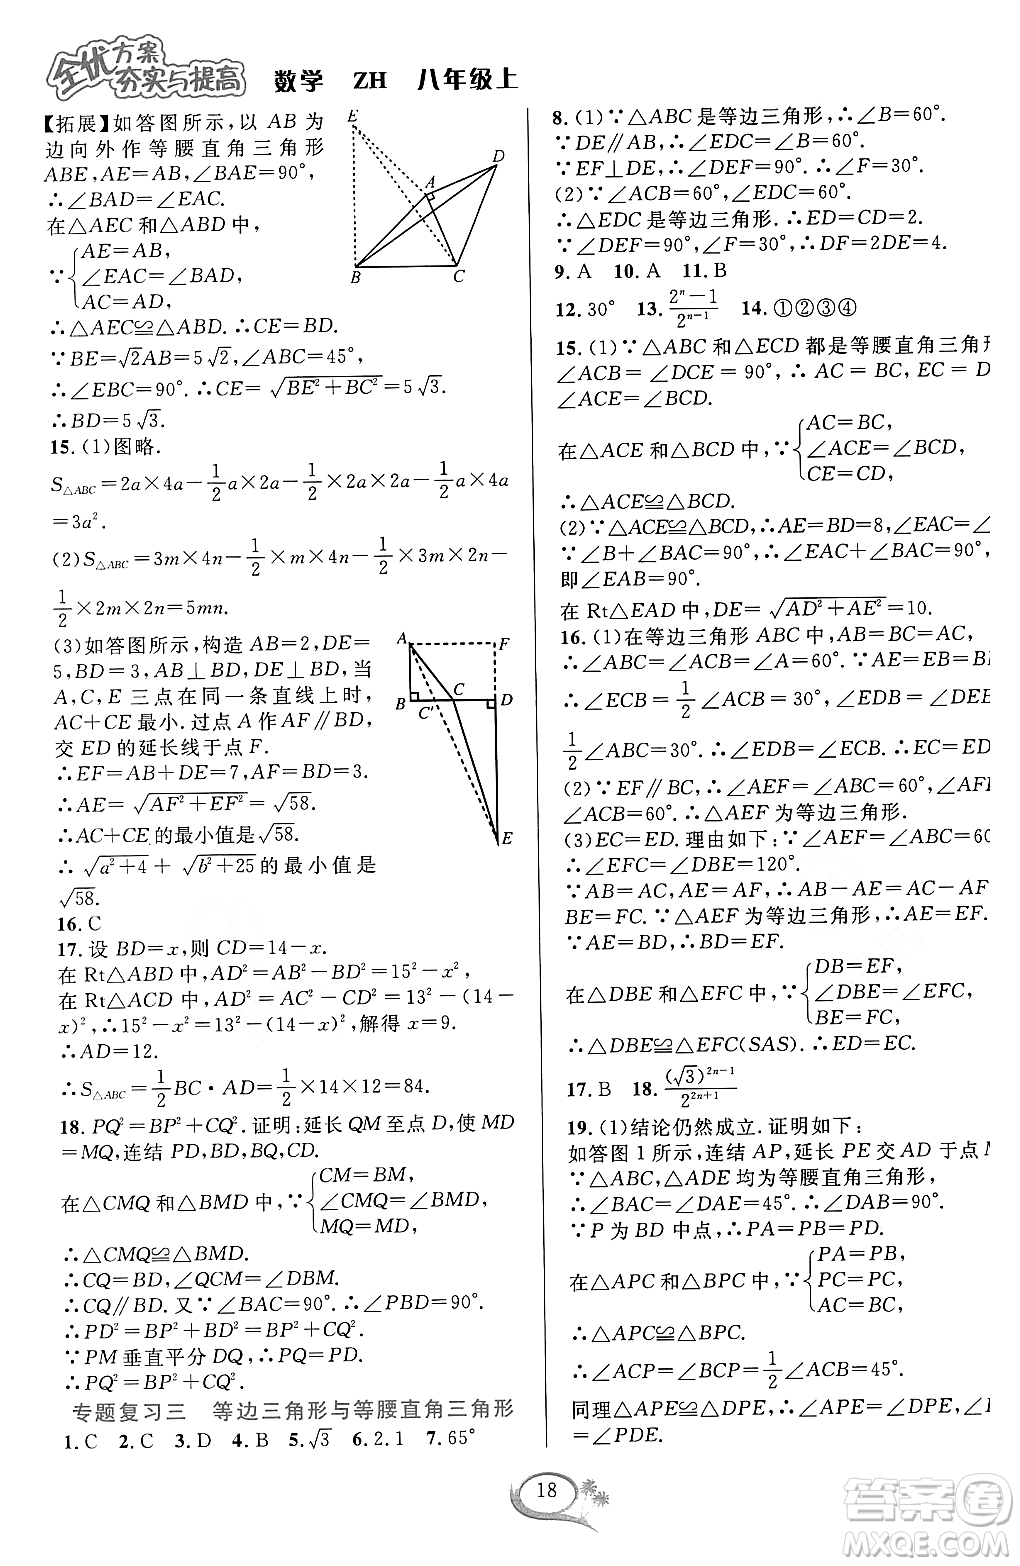 全优方案
夯实与提高 数学 ZH 八年级上
【拓展】如答图所示,以 AB 为
边向外作等腰直角三角形
ABE,AE=AB,∠BAE=90°,
∴∠BAD=∠EAC.
在△AEC 和△ABD 中,
∵{AE=AB,
∠EAC=∠BAD,
AC=AD,
∴△AEC≌△ABD.∴CE=BD.
∵BE=√2AB=5√2,∠ABE=45°,
∴∠EBC=90°.∴CE=√(BE²+BC²)=5√3.
∴BD=5√3.
E
D
A
B
C
15.(1)图略.
S△ABC=2a×4a-1/2a×2a-1/2×2a×2a-1/2×a×4a
=3a².
(2)S△ABC=3m×4n-1/2×m×4n-1/2×3m×2n-
1/2×2m×2n=5mn.
(3)如答图所示,构造 AB=2,DE=
5,BD=3,AB⊥BD,DE⊥BD,当
A,C,E 三点在同一条直线上时,
AC+CE 最小.过点 A 作 AF∥BD,
交 ED 的延长线于点 F.
∴EF=AB+DE=7,AF=BD=3.
∴AE=√(AF²+EF²)=√58.
∴AC+CE 的最小值是√58.
∴√(a²+4)+√(b²+25)的最小值是
√58.
A
F
B
C'
C
D
E
16.C
17.设 BD=x,则 CD=14-x.
在 Rt△ABD 中,AD²=AB²-BD²=15²-x²,
在 Rt△ACD 中,AD²=AC²-CD²=13²-(14-
x)²,∴15²-x²=13²-(14-x)²,解得 x=9.
∴AD=12.
∴S△ABC=1/2BC·AD=1/2×14×12=84.
18.PQ²=BP²+CQ².证明:延长 QM 至点 D,使 MD
=MQ,连结 PD,BD,PQ.
在△CMQ 和△BMD 中,∵{CM=BM,
∠CMQ=∠BMD,
MQ=MD,
∴△CMQ≌△BMD.
∴CQ=BD,∠QCM=∠DBM.
∴CQ∥BD.又∵∠BAC=90°,∴∠PBD=90°.
∴PD²=BP²+BD²=BP²+CQ².
∵PM 垂直平分 DQ,∴PQ=PD.
∴PQ²=BP²+CQ².
专题复习三 等边三角形与等腰直角三角形
1.C 2.C 3.D 4.B 5.√3 6.2.1 7.65°
8.(1)∵△ABC 是等边三角形,∴∠B=60°.
∵DE∥AB,∴∠EDC=∠B=60°.
∵EF⊥DE,∴∠DEF=90°.∴∠F=30°.
(2)∵∠ACB=60°,∠EDC=60°.
∴△EDC 是等边三角形.∴ED=CD=2.
∵∠DEF=90°,∠F=30°,∴DF=2DE=4.
9.A 10.A 11.B
12.30° 13.(2ⁿ-1)/2ⁿ⁻¹ 14.①②③④
15.(1)∵△ABC 和△ECD 都是等腰直角三角形
∠ACB=∠DCE=90°,∴AC=BC,EC=D
∠ACE=∠BCD.
在△ACE 和△BCD 中,∵{AC=BC,
∠ACE=∠BCD,
CE=CD,
∴△ACE≌△BCD.
(2)∵△ACE≌△BCD,∴AE=BD=8,∠EAC=∠
∵∠B+∠BAC=90°,∴∠EAC+∠BAC=90°,
即∠EAB=90°.
在 Rt△EAD 中,DE=√(AD²+AE²)=10.
16.(1)在等边三角形 ABC 中,AB=AC,
∴∠ABC=∠ACB=∠A=60°.∵AE=EB=B
∴∠ECB=1/2∠ACB=30°,∠EDB=∠DEB=
1/2∠ABC=30°.∴∠EDB=∠ECB.∴EC=ED.
(2)∵EF∥BC,∴∠AEF=∠ABC=60°,∠AF
∠ACB=60°.∴△AEF 为等边三角形.
(3)EC=ED.理由如下:∵∠AEF=∠ABC=60
∴∠EFC=∠DBE=120°.
∵AB=AC,AE=AF,∴AB-AE=AC-AF,
BE=FC.∵△AEF 为等边三角形,∴AE=EF.
∵AE=BD,∴BD=EF.
在△DBE 和△EFC 中,∵{DB=EF,
∠DBE=∠EFC,
BE=FC,
∴△DBE≌△EFC(SAS).∴ED=EC.
17.B 18.(√3)²ⁿ⁻¹/2²ⁿ⁺¹
19.(1)结论仍然成立.证明如下:
如答图 1 所示,连结 AP,延长 PE 交 AD 于点 M
∵△ABC,△ADE 均为等腰直角三角形,
∴∠BAC=∠DAE=45°.∴∠DAB=90°.
∵P 为 BD 中点,∴PA=PB=PD.
在△APC 和△BPC 中,∵{PA=PB,
PC=PC,
AC=BC,
∴△APC≌△BPC.
∴∠ACP=∠BCP=1/2∠ACB=45°.
同理△APE≌△DPE,∴∠APE=∠DPE,∠A
=∠PDE.
18
答案圈
MXQE.COM